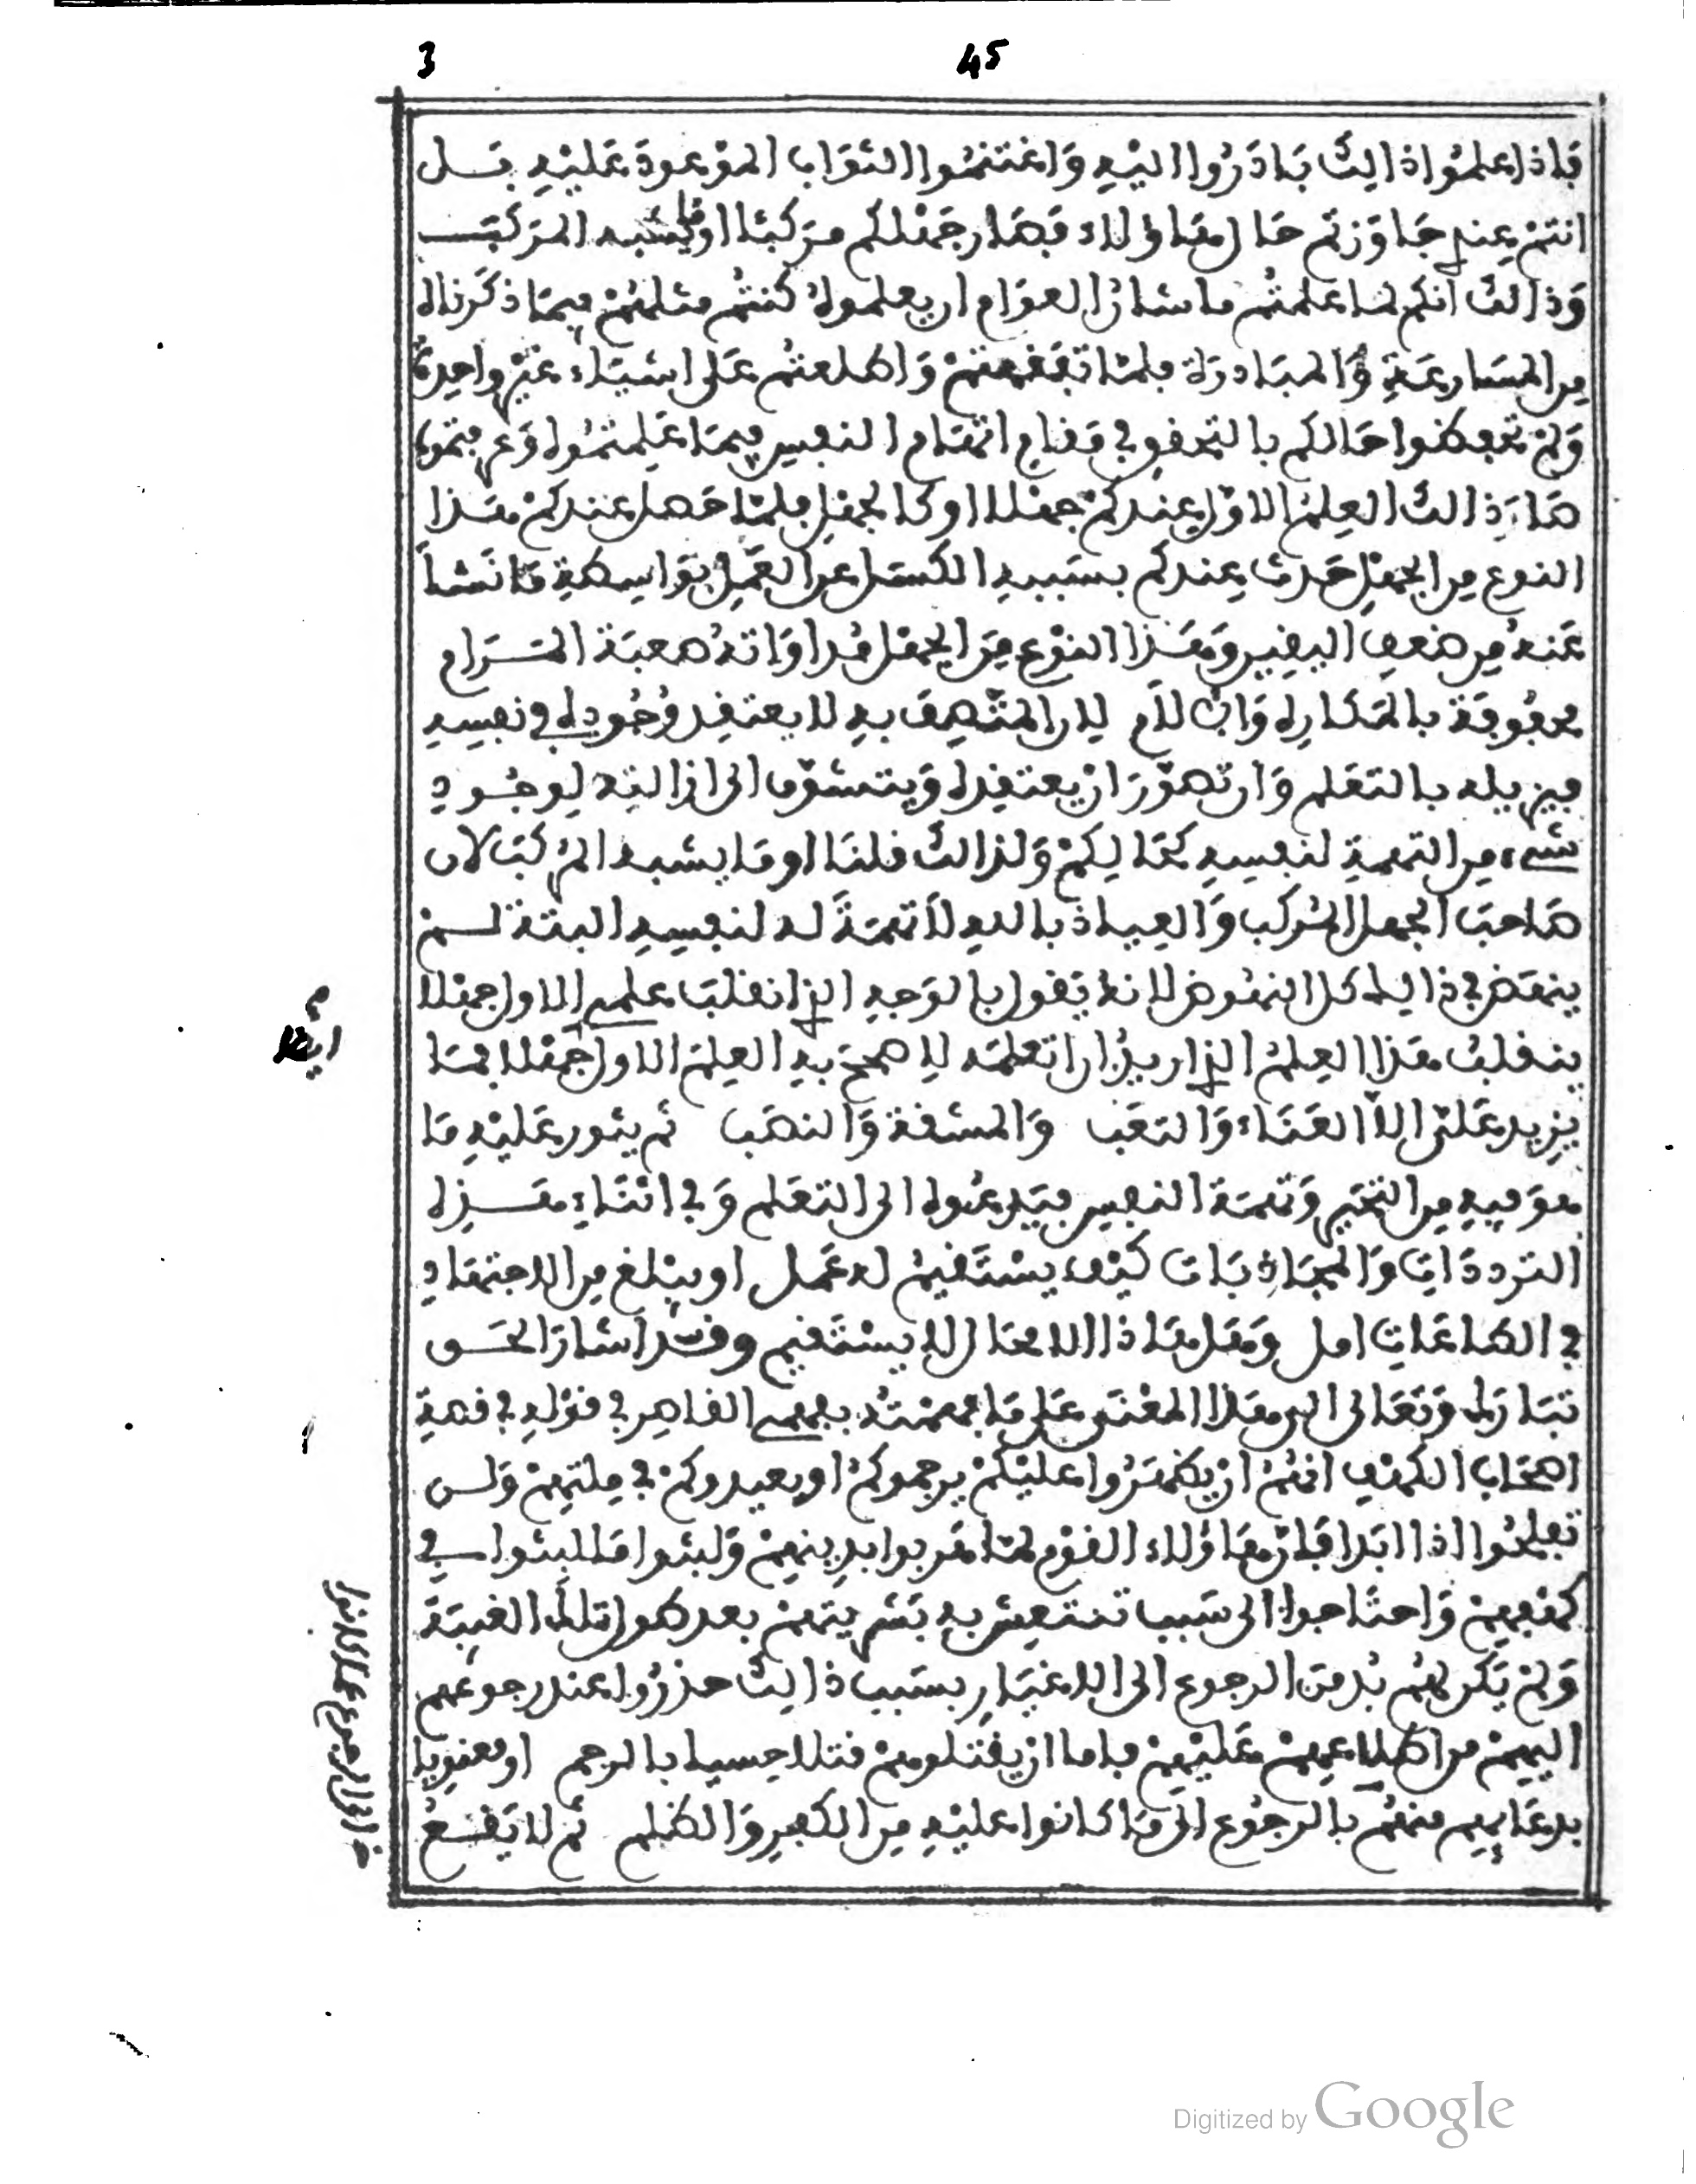 3 45
فاذا علموا ذالك بادروا اليه واغتنموا الثواب الموعود عليه بل
انتم عند جاوزتم حال هاؤلاء فصار جهلكم مركبا او ما يشبه المركب
وذالك انكم لما علمتم ما شان العوام ان يعلموه كنتم مثلهم فيما ذكرناه
من المسارعة والمبادرة فلما تفقهتم واطلعتم على اشياء غير واحدة
ولم تحفظوا حالكم بالتحقق في مقام اتهام النفس فيما علمتموه وعرفتموه
صار ذالك العلم الاول عندكم جهلا او كالجهل فلما حصل عندكم هذا
النوع من الجهل حدث عندكم بسببه الكسل عن العمل بواسطة ما نشأ
عنه من ضعف اليقين وهذا النوع من الجهل مداواته صعبة المرام
محفوفة بالمكاره والالام لان المتصف به لا يعتقد وجوده في نفسه
فيزيله بالتعلم وان تصور ان يعتقده ويتشوف الى ازالته لوجود
شيء من التهمة لنفسه كحالكم ولذالك قلنا او ما يشبه المركب لان
صاحب الجهل المركب والعياذ بالله لا تهمة له لنفسه البتة لم
ينهض في ذالك كل النهوض لانه يقول بالوجه الذي انقلب علمي الاول جهلا
ينقلب هذا العلم الذي اريد ان اتعلمه لاصحح به العلم الاول جهلا فما
يزيد علي الا العناء والتعب والمشقة والنصب ثم يثور عليه ما
هو فيه من التحير وتهمة النفس فيدعوه الى التعلم وفي اثناء هذه
الترددات والمجاذبات كيف يستقيم له عمل او يبلغ من الاجتهاد
في الطاعات امل وهل هاذا الا محال لا يستقيم وقد اشار الحق
تبارك وتعالى الى هذا المعنى على ما فهمته بفهمي القاصر في قوله في قصة
اصحاب الكهف انهم ان يظهروا عليكم يرجموكم او يعيدوكم في ملتهم ولن
تفلحوا اذا ابدا فان هاؤلاء القوم لما هربوا بدينهم ولبثوا ما لبثوا في
كهفهم واحتاجوا الى سبب تنتعش به بشريتهم بعد طول تلك الغيبة
ولم يكن لهم بد من الرجوع الى الاغيار بسبب ذالك حذروا عند رجوعهم
اليهم من اطلاعهم عليهم فاما ان يقتلوهم قتلا حسيا بالرجم او معنويا
بدعايهم منهم بالرجوع الى ما كانوا عليه من الكفر والظلم ثم لا يقع
ايضا
Digitized by Google